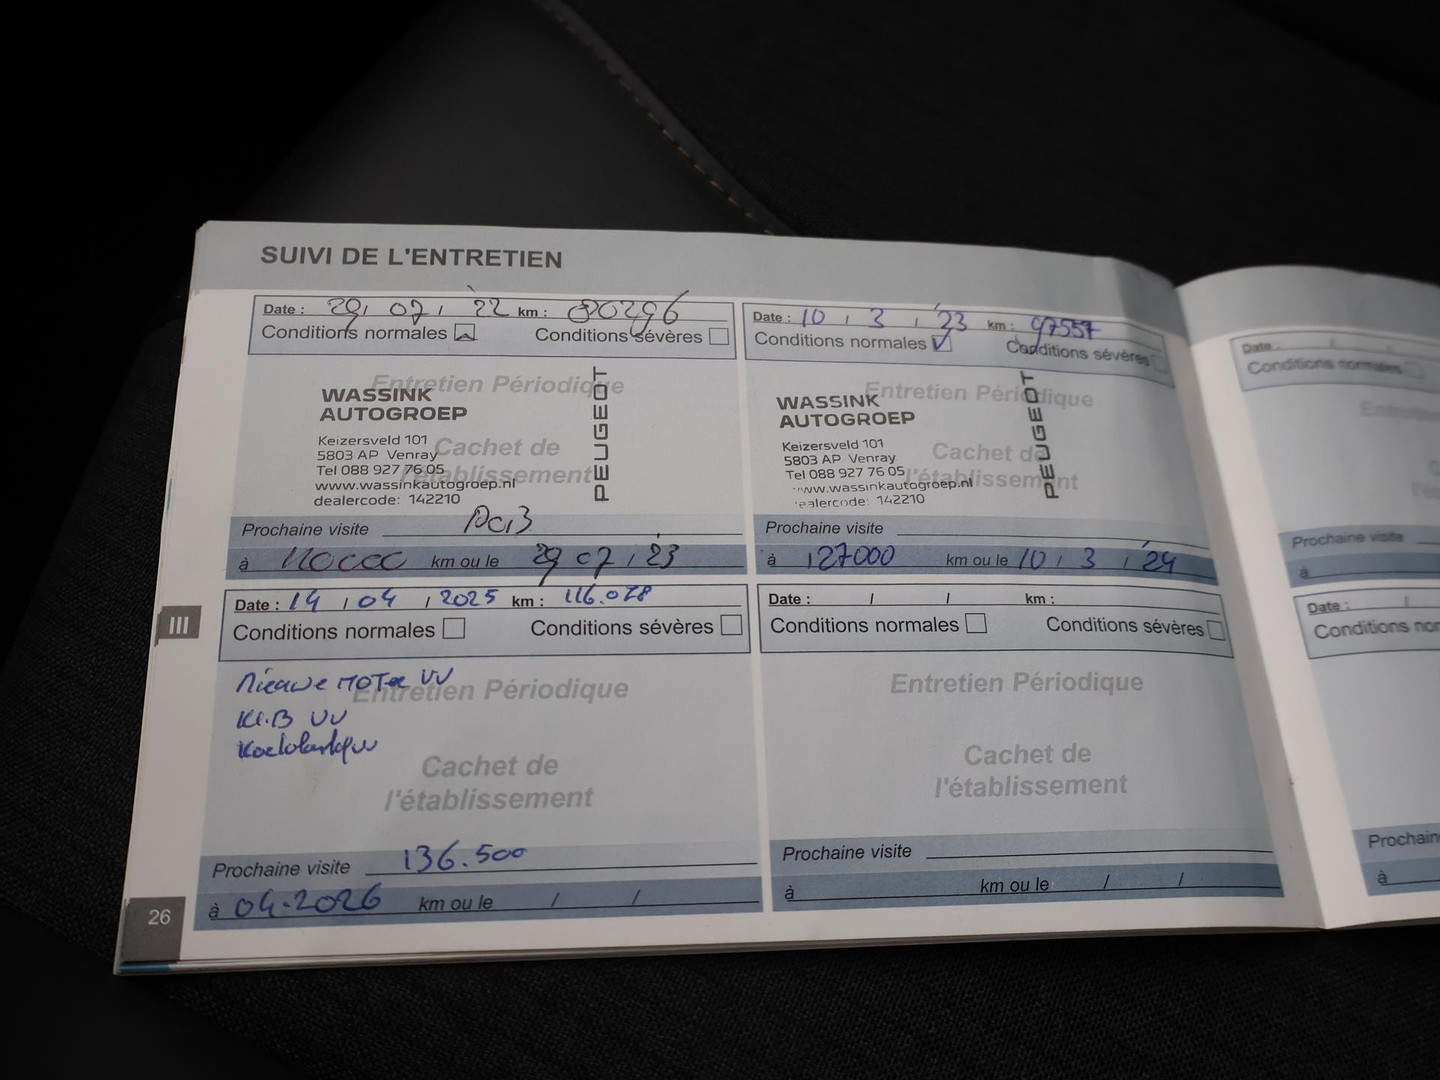 SUIVI DE L'ENTRETIEN
Date : 29 / 07 / '22 km : 80296
Conditions normales Conditions sévères
Entretien Périodique
WASSINK
AUTOGROEP
Keizersveld 101
5803 AP Venray
Tel 088 927 76 05
www.wassinkautogroep.nl
dealercode: 142210
PEUGEOT
Cachet de
l'établissement
Prochaine visite
à km ou le 29 07 / '23
Date : 10 / 3 / '23 km : 97557
Conditions normales Conditions sévères
Entretien Périodique
WASSINK
AUTOGROEP
Keizersveld 101
5803 AP Venray
Tel 088 927 76 05
www.wassinkautogroep.nl
dealercode: 142210
PEUGEOT
Cachet de
l'établissement
Prochaine visite
à 127000 km ou le 10 / 3 / '24
III
Date : 14 / 04 / 2025 km : 116.078
Conditions normales Conditions sévères
Nieuwe MOTOR VV
Entretien Périodique
VV
Cachet de
l'établissement
Prochaine visite 136.500
à 04-2026 km ou le / /
Date : / / km :
Conditions normales Conditions sévères
Entretien Périodique
Cachet de
l'établissement
Prochaine visite
à km ou le / /
26
Date : / /
Conditions normales
Prochaine visite
à
Date : /
Conditions nor
Prochain
à